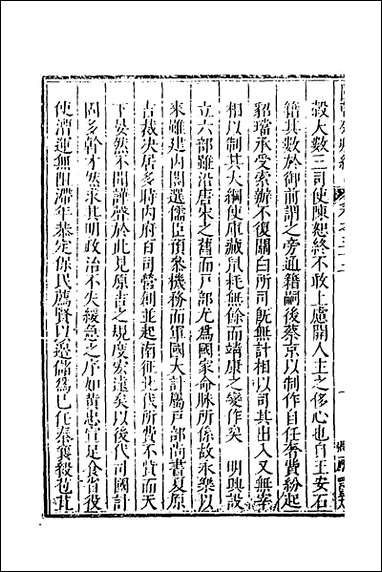 穀大數三司使陳恕終不敢上慮開人主之侈心也自王安石
籍其數於御前謂之旁通籍嗣後蔡京以制作自任奢費紛起
貂璫承受索辦不復關白所司既無計相以司其出入又無案
相以制其大綱使庫藏𣱵耗無餘而靖康之變作矣 明興設
立六部雖沿唐宋之舊而戸部尤爲國家命脉所係故永樂以
來雖建內閣選儒臣預參機務而軍國大計屬戸部尚書夏原
吉裁決居多時內府百司營創並起南征北伐所費不貲而天
下晏然不聞謗聲於此見原吉之規度宏遠矣以後代司國計
固多幹才然求其明政治不失緩急之序如黄忠宣足食省役
使漕運無阻滯年恭定保民薦賢以邊儲爲已任秦襄毅